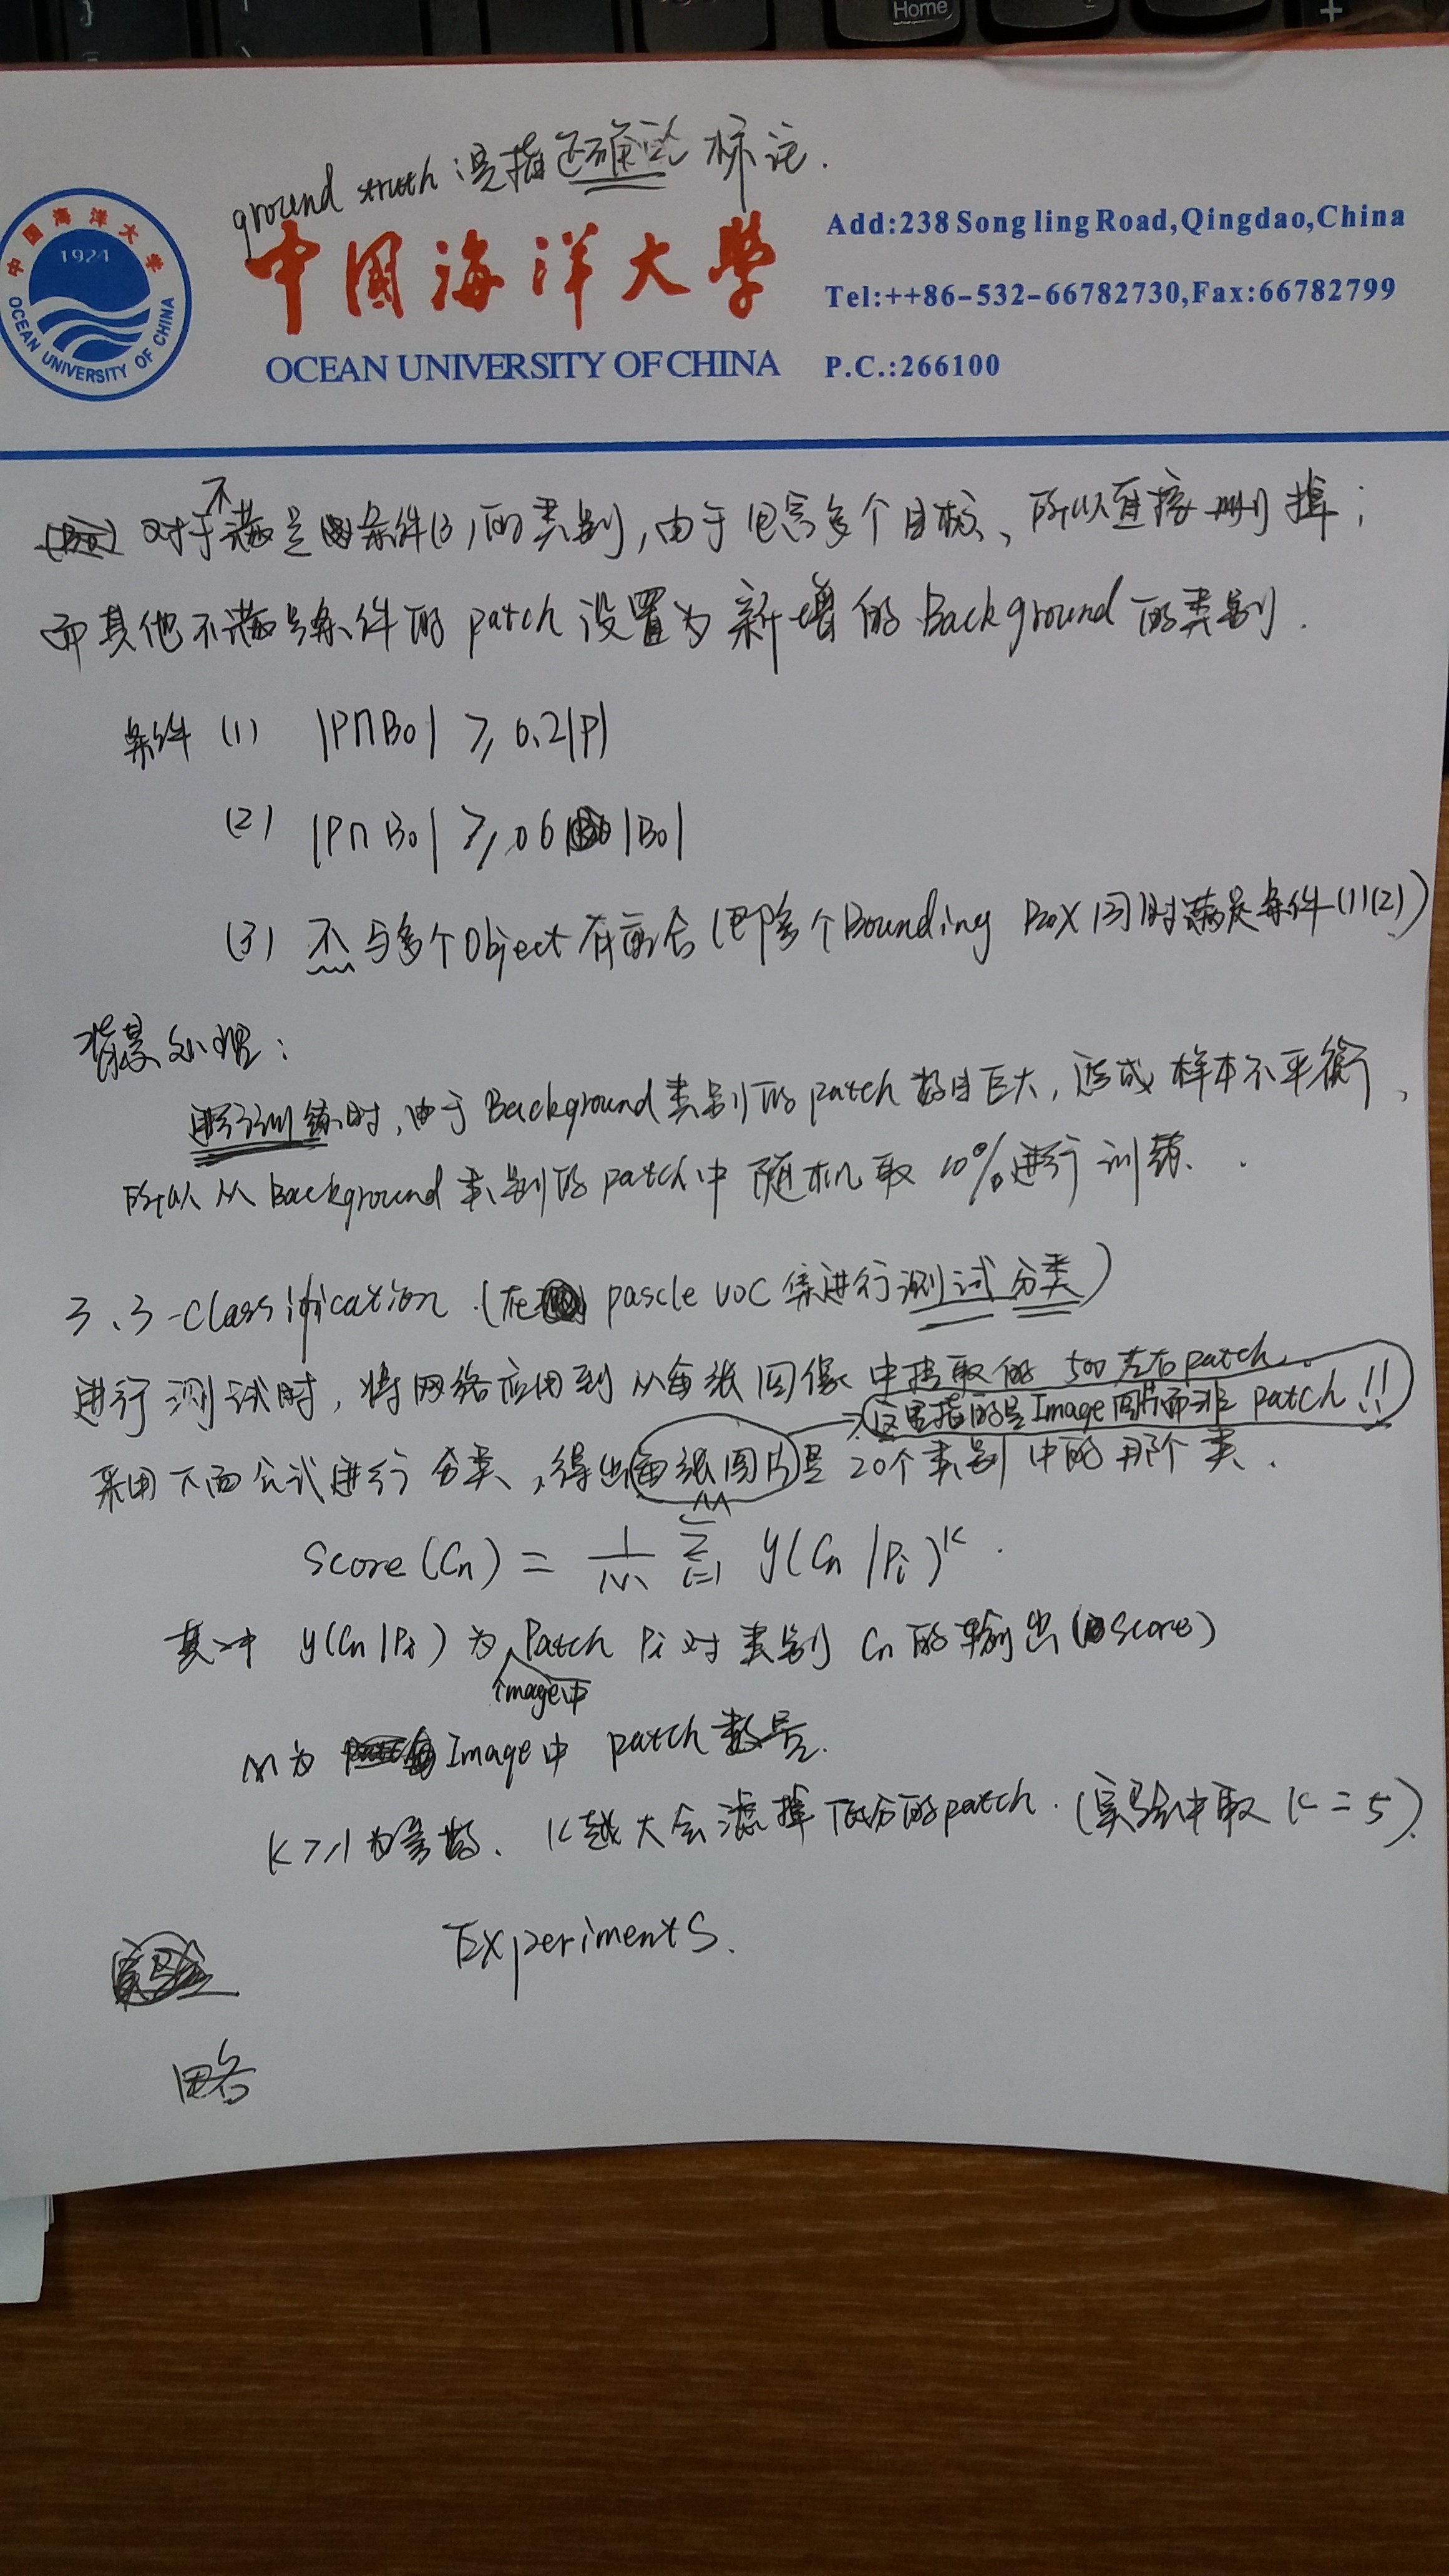 Home
ground struth 是指正确的标记.
中国海洋大学
1924
OCEAN UNIVERSITY OF CHINA
中国海洋大学
OCEAN UNIVERSITY OF CHINA
Add:238 Song ling Road,Qingdao,China
Tel:++86-532-66782730,Fax:66782799
P.C.:266100
对于不满足条件(3)的类别,由于包含多个目标、所以直接删掉;
而其他不满足条件的patch设置为新增的Background的类别.
条件 (1) |P∩Bo| ≥ 0.2|P|
(2) |P∩Bo| ≥ 0.6 |Bo|
(3) 不与多个Object有重合(即多个Bounding Box同时满足条件(1)(2))
背景处理:
进行训练时,由于Background类别的patch数目巨大,造成样本不平衡,
所以从Background类别的patch中随机取10%进行训练.
3.3-Classification.(在 pascle VOC集进行测试分类)
进行测试时,将网络应用到从每张图像中提取的500左右patch.
这里指的是Image图片而非patch!!
采用下面公式进行分类,得出每张图片是20个类别中的那个类.
Score(Cn) = 1/M M∑i=1 y(Cn|Pi)^K.
其中 y(Cn|Pi)为Patch Pi对类别Cn的输出(Score)
image中
M为 Image中 patch数量.
K≥1为参数、K越大会滤掉低分的patch.(实验中取K=5).
Experiments.
略